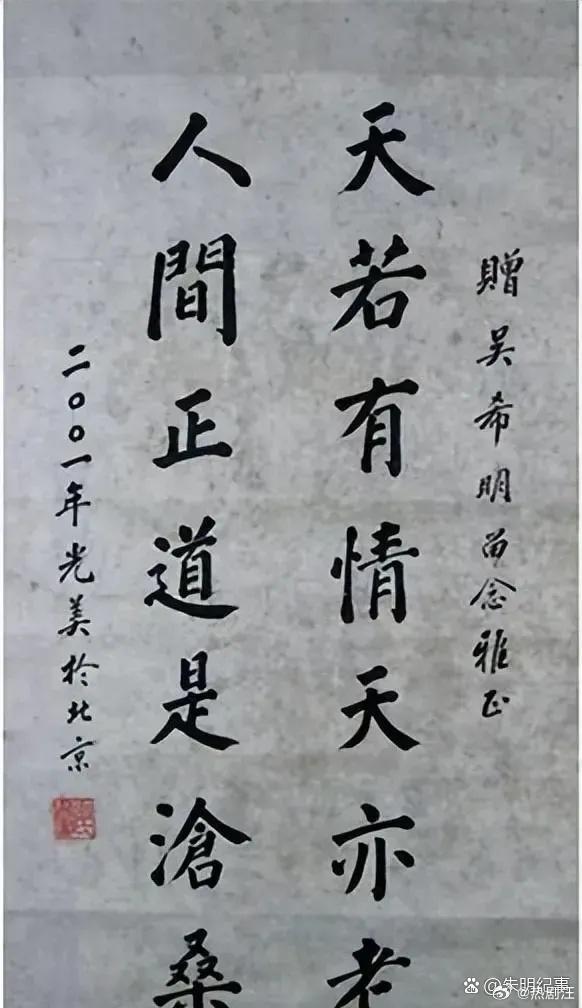 贈吴希明留念雅正
天若有情天亦老
人間正道是滄桑
二〇〇一年光美於北京
@朱明纪事
@热剧汪